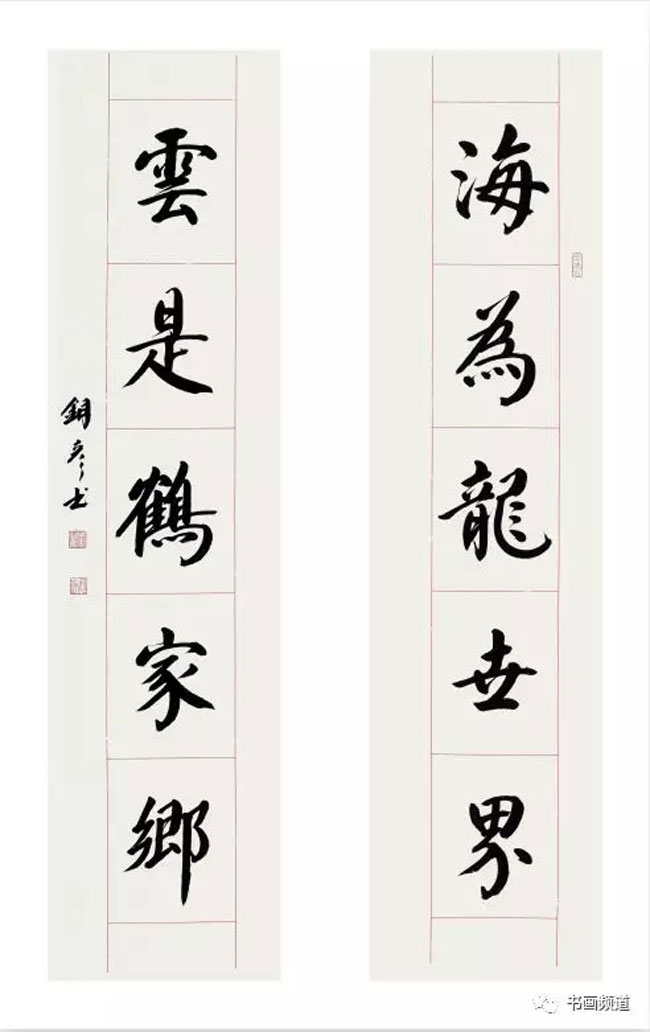 海為龍世界
雲是鶴家鄉
銅彥书
书画频道